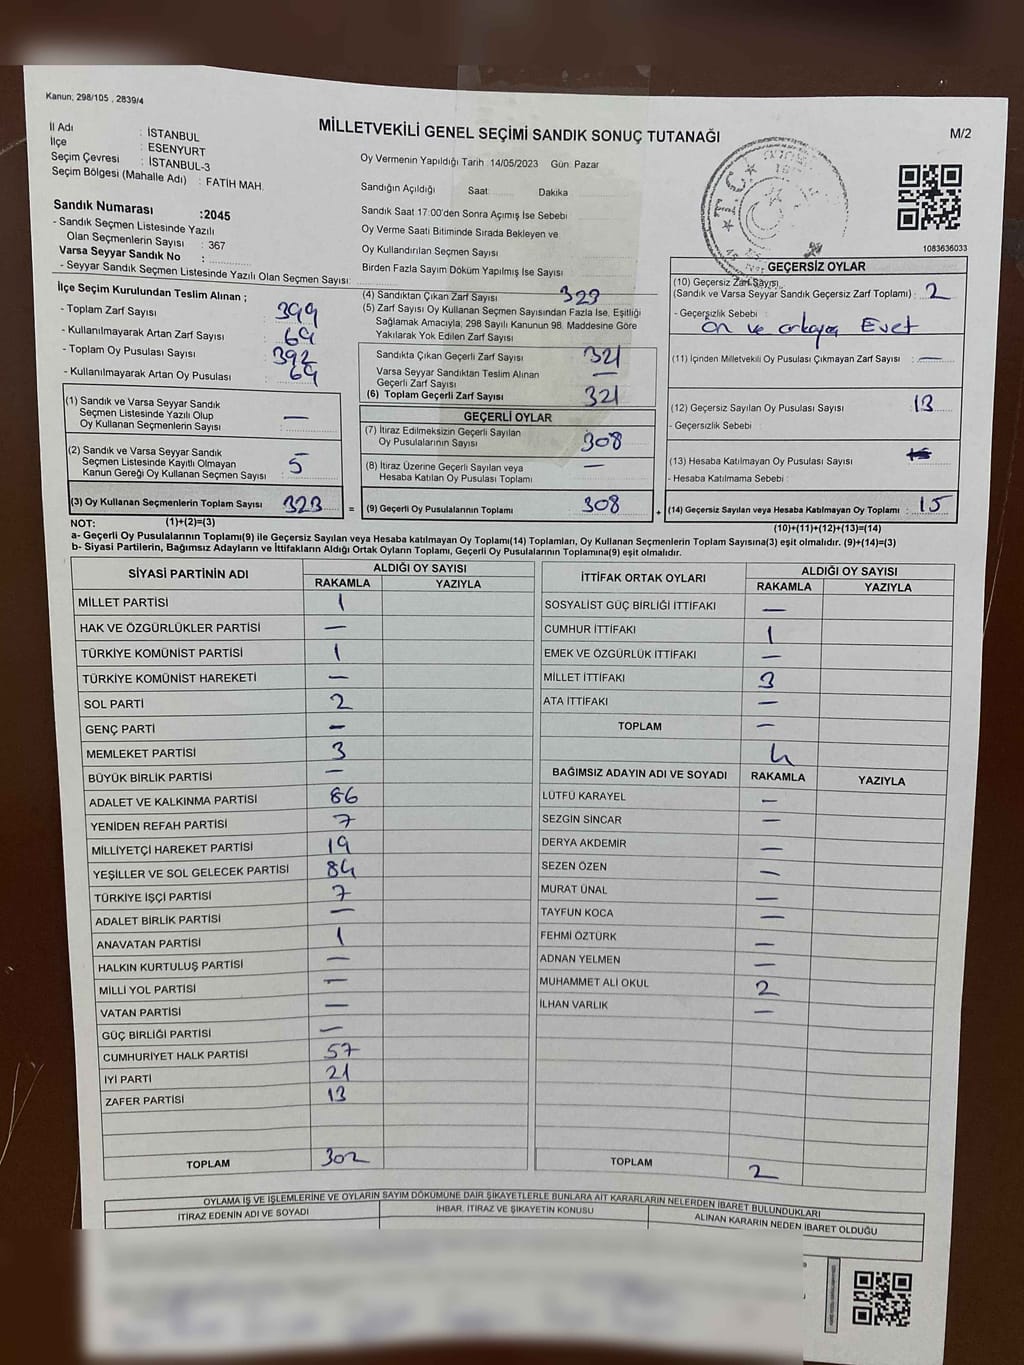 Kanun; 298/105 , 2839/4
MİLLETVEKİLİ GENEL SEÇİMİ SANDIK SONUÇ TUTANAĞI
M/2
İl Adı : İSTANBUL
İlçe : ESENYURT
Seçim Çevresi : İSTANBUL-3
Seçim Bölgesi (Mahalle Adı) : FATİH MAH.
Sandık Numarası :2045
- Sandık Seçmen Listesinde Yazılı
Olan Seçmenlerin Sayısı : 367
Varsa Seyyar Sandık No :
- Seyyar Sandık Seçmen Listesinde Yazılı Olan Seçmen Sayısı:
Oy Vermenin Yapıldığı Tarih : 14/05/2023 Gün: Pazar
Sandığın Açıldığı Saat: Dakika
Sandık Saat 17:00'den Sonra Açımış İse Sebebi
Oy Verme Saati Bitiminde Sırada Bekleyen ve
Oy Kullandırılan Seçmen Sayısı
Birden Fazla Sayım Döküm Yapılmış İse Sayısı
T.C.
1083636033
İlçe Seçim Kurulundan Teslim Alınan ;
- Toplam Zarf Sayısı : 399
- Kullanılmayarak Artan Zarf Sayısı : 69
- Toplam Oy Pusulası Sayısı : 392
- Kullanılmayarak Artan Oy Pusulası : 69
(1) Sandık ve Varsa Seyyar Sandık
Seçmen Listesinde Yazılı Olup
Oy Kullanan Seçmenlerin Sayısı : —
(2) Sandık ve Varsa Seyyar Sandık
Seçmen Listesinde Kayıtlı Olmayan
Kanun Gereği Oy Kullanan Seçmen Sayısı : 5
(3) Oy Kullanan Seçmenlerin Toplam Sayısı : 323 =
(4) Sandıktan Çıkan Zarf Sayısı 323
(5) Zarf Sayısı Oy Kullanan Seçmen Sayısından Fazla İse, Eşitliği
Sağlamak Amacıyla, 298 Sayılı Kanunun 98. Maddesine Göre
Yakılarak Yok Edilen Zarf Sayısı
Sandıkta Çıkan Geçerli Zarf Sayısı : 321
Varsa Seyyar Sandıktan Teslim Alınan
Geçerli Zarf Sayısı : —
(6) Toplam Geçerli Zarf Sayısı : 321
GEÇERLİ OYLAR
(7) İtiraz Edilmeksizin Geçerli Sayılan
Oy Pusulalarının Sayısı : 308
(8) İtiraz Üzerine Geçerli Sayılan veya
Hesaba Katılan Oy Pusulası Toplamı : —
(9) Gecerli Oy Pusulalarının Toplamı : 308 +
GEÇERSİZ OYLAR
(10) Geçersiz Zarf Sayısı
(Sandık ve Varsa Seyyar Sandık Geçersiz Zarf Toplamı) : 2
- Geçersizlik Sebebi :
Ön ve arkaya Evet
(11) İçinden Milletvekili Oy Pusulası Çıkmayan Zarf Sayısı : —
(12) Geçersiz Sayılan Oy Pusulası Sayısı : 13
- Geçersizlik Sebebi :
(13) Hesaba Katılmayan Oy Pusulası Sayısı :
- Hesaba Katılmama Sebebi :
(14) Geçersiz Sayılan veya Hesaba Katılmayan Oy Toplamı : 15
(10)+(11)+(12)+(13)=(14)
NOT: (1)+(2)=(3)
a- Geçerli Oy Pusulasının Toplamı(9) ile Geçersiz Sayılan veya Hesaba katılmayan Oy Toplamı(14) Toplamları, Oy Kullanan Seçmenlerin Toplam Sayısına(3) eşit olmalıdır. (9)+(14)=(3)
b- Siyasi Partilerin, Bağımsız Adayların ve İttifakların Aldığı Ortak Oyların Toplamı, Geçerli Oy Pusulalarının Toplamına(9) eşit olmalıdır.
SİYASİ PARTİNİN ADI ALDIĞI OY SAYISI
RAKAMLA YAZIYLA
MİLLET PARTİSİ 1
HAK VE ÖZGÜRLÜKLER PARTİSİ —
TÜRKİYE KOMÜNİST PARTİSİ 1
TÜRKİYE KOMÜNİST HAREKETİ —
SOL PARTİ 2
GENÇ PARTİ —
MEMLEKET PARTİSİ 3
BÜYÜK BİRLİK PARTİSİ —
ADALET VE KALKINMA PARTİSİ 86
YENİDEN REFAH PARTİSİ 7
MİLLİYETÇİ HAREKET PARTİSİ 19
YEŞİLLER VE SOL GELECEK PARTİSİ 84
TÜRKİYE İŞÇİ PARTİSİ 7
ADALET BİRLİK PARTİSİ —
ANAVATAN PARTİSİ 1
HALKIN KURTULUŞ PARTİSİ —
MİLLİ YOL PARTİSİ —
VATAN PARTİSİ —
GÜÇ BİRLİĞİ PARTİSİ —
CUMHURİYET HALK PARTİSİ 57
İYİ PARTİ 21
ZAFER PARTİSİ 13
TOPLAM 302
İTTİFAK ORTAK OYLARI ALDIĞI OY SAYISI
RAKAMLA YAZIYLA
SOSYALİST GÜÇ BİRLİĞİ İTTİFAKI —
CUMHUR İTTİFAKI 1
EMEK VE ÖZGÜRLÜK İTTİFAKI —
MİLLET İTTİFAKI 3
ATA İTTİFAKI —
TOPLAM —
4
BAĞIMSIZ ADAYIN ADI VE SOYADI RAKAMLA YAZIYLA
LÜTFÜ KARAYEL —
SEZGİN SİNCAR —
DERYA AKDEMİR —
SEZEN ÖZEN —
MURAT ÜNAL —
TAYFUN KOCA —
FEHMİ ÖZTÜRK —
ADNAN YELMEN —
MUHAMMET ALİ OKUL 2
İLHAN VARLIK —
TOPLAM 2
OYLAMA İŞ VE İŞLEMLERİNE VE OYLARIN SAYIM DÖKÜMÜNE DAİR ŞİKAYETLERLE BUNLARA AİT KARARLARIN NELERDEN İBARET BULUNDUKLARI
İTİRAZ EDENİN ADI VE SOYADI İHBAR, İTİRAZ VE ŞİKAYETİN KONUSU ALINAN KARARIN NEDEN İBARET OLDUĞU